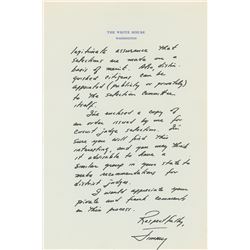 THE WHITE HOUSE
WASHINGTON
legitimate assurance that
selections are made on a
basis of merit. Also, distin-
guished citizens can be
appointed (publicly or privately)
to the selection committee
itself.
I've enclosed a copy of
an order issued by me for
circuit judge selection. I'm
sure you will find this
interesting, and you may think
it advisable to have a
similar group in your state to
make recommendations for
district judges.
I would appreciate your
private and frank comments
on this process.
Respectfully,
Jimmy